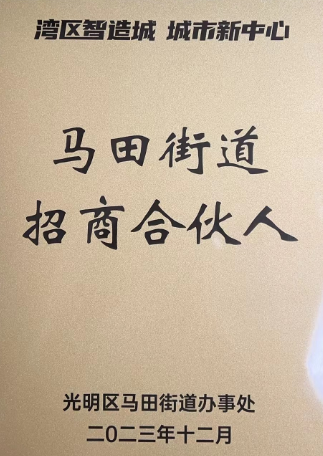 湾区智造城 城市新中心
马田街道
招商合伙人
光明区马田街道办事处
二〇二三年十二月